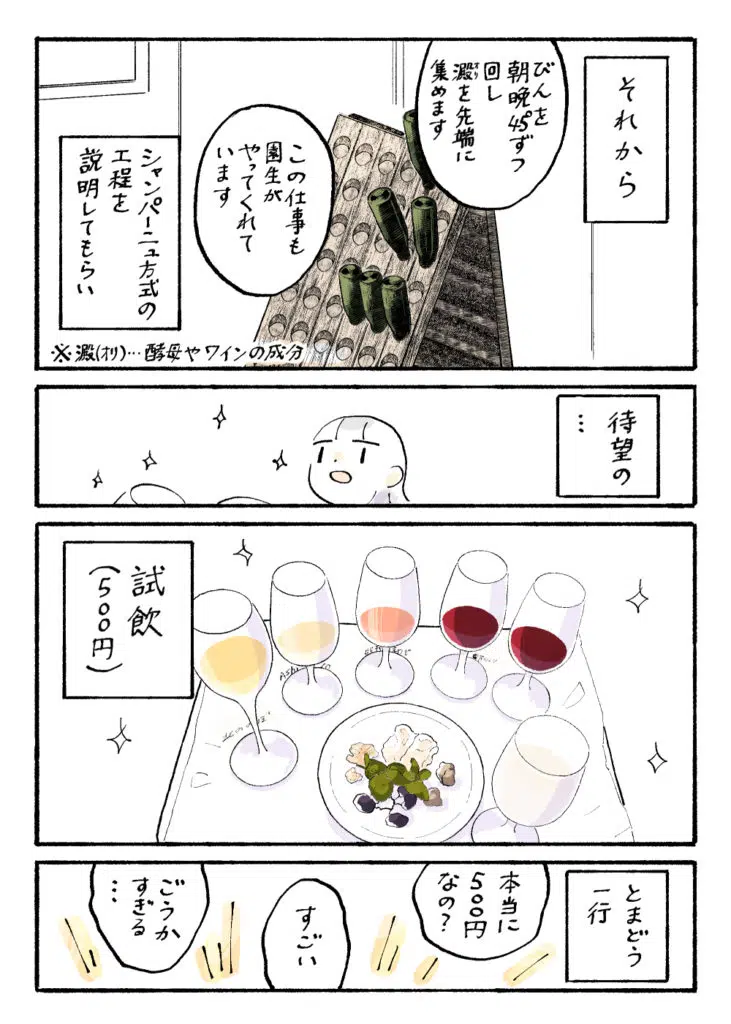 それから
びんを
朝晩45°ずつ
回し
澱を先端に
集めます
オリ
この仕事も
園生が
やってくれて
います
シャンパーニュ方式の
工程を
説明してもらい
※澱(オリ)…酵母やワインの成分
待望の
…
試飲
(500円)
とまどう
一行
本当に
500円
なの?
すごい
ごうか
すぎる
…